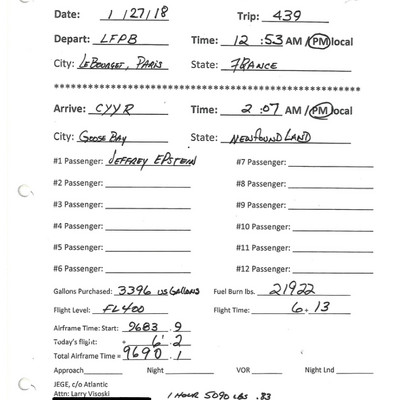 Date: 1/27/18 Trip: 439
Depart: LFPB Time: 12:53 AM / PM local
City: LeBourget, Paris State: FRANCE
************************************************************
Arrive: CYYR Time: 2:07 AM / PM local
City: Goose Bay State: Newfoundland
#1 Passenger: Jeffrey Epstein #7 Passenger:
#2 Passenger: #8 Passenger:
#3 Passenger: #9 Passenger:
#4 Passenger: #10 Passenger:
#5 Passenger: #11 Passenger:
#6 Passenger: #12 Passenger:
Gallons Purchased: 3396 US Gallons Fuel Burn lbs. 21922
Flight Level: FL400 Flight Time: 6.13
Airframe Time: Start: 9683.9
Today's flight: + 6.2
Total Airframe Time = 9690.1
Approach Night VOR Night Lnd
JEGE, c/o Atlantic
Attn: Larry Visoski 1 Hour 5090 lbs .83